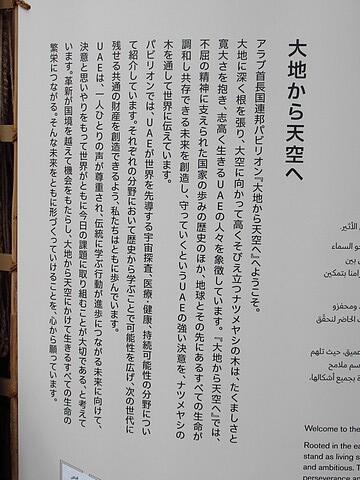 大地から天空へ
アラブ首長国連邦パビリオン『大地から天空へ』へようこそ。
大地に深く根を張り、大空に向かって高くそびえ立つナツメヤシの木は、たくましさと
寛大さを抱き、志高く生きるUAEの人々を象徴しています。『大地から天空へ』では、
不屈の精神に支えられた国家の歩みの歴史のほか、地球とその先にあるすべての生命が
調和し共存できる未来を創造し、守っていくというUAEの強い決意を、ナツメヤシの
木を通して世界に伝えています。
パビリオンでは、UAEが世界を先導する宇宙探査、医療・健康、持続可能性の分野につい
て紹介しています。それぞれの分野において歴史から学ぶことで可能性を広げ、次の世代に
残せる共通の財産を創造できるよう、私たちはともに歩んでいます。
UAEは、一人ひとりの声が尊重され、伝統に学ぶ行動が進歩につながる未来に向けて、
決意と思いやりをもって世界がともに今日の課題に取り組むことが大切である、と考えて
います。革新が国境を越えて機会をもたらし、大地から天空にかけて生きるすべての生命の
繁栄につながる。そんな未来をともに形づくっていけることを、心から願っています。
الأثير.
نحو السماء
بين
رامنا بتمكين
، ومحفزو
الحاضر لنحقق
عميق، حيث تلهم
رسم ملامح
ة بجميع أشكالها.
Welcome to the
Rooted in the ea
stand as living s
and ambitious. T
perseverance an